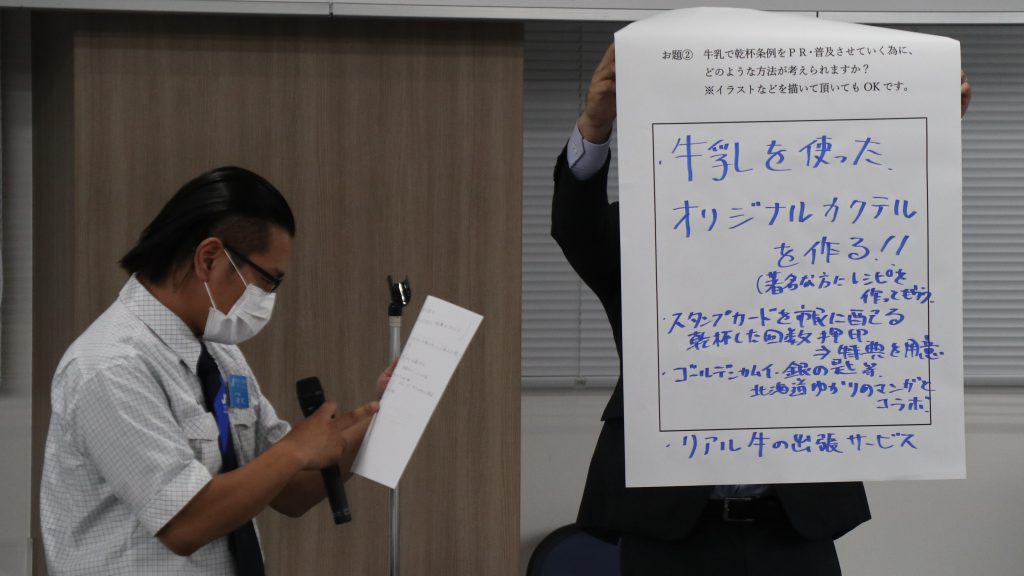 お題② 牛乳で乾杯条例をPR・普及させていく為に、
どのような方法が考えられますか？
※イラストなどを描いて頂いてもOKです。
・牛乳を使った
オリジナルカクテル
を作る!!
(著名な方にレシピを
作ってもらう
・スタンプカードを市民に配る
乾杯した回数押印
⇒特典を用意
・ゴールデンカムイ・銀の匙等
北海道ゆかりのマンガと
コラボ
・リアル牛の出張サービス